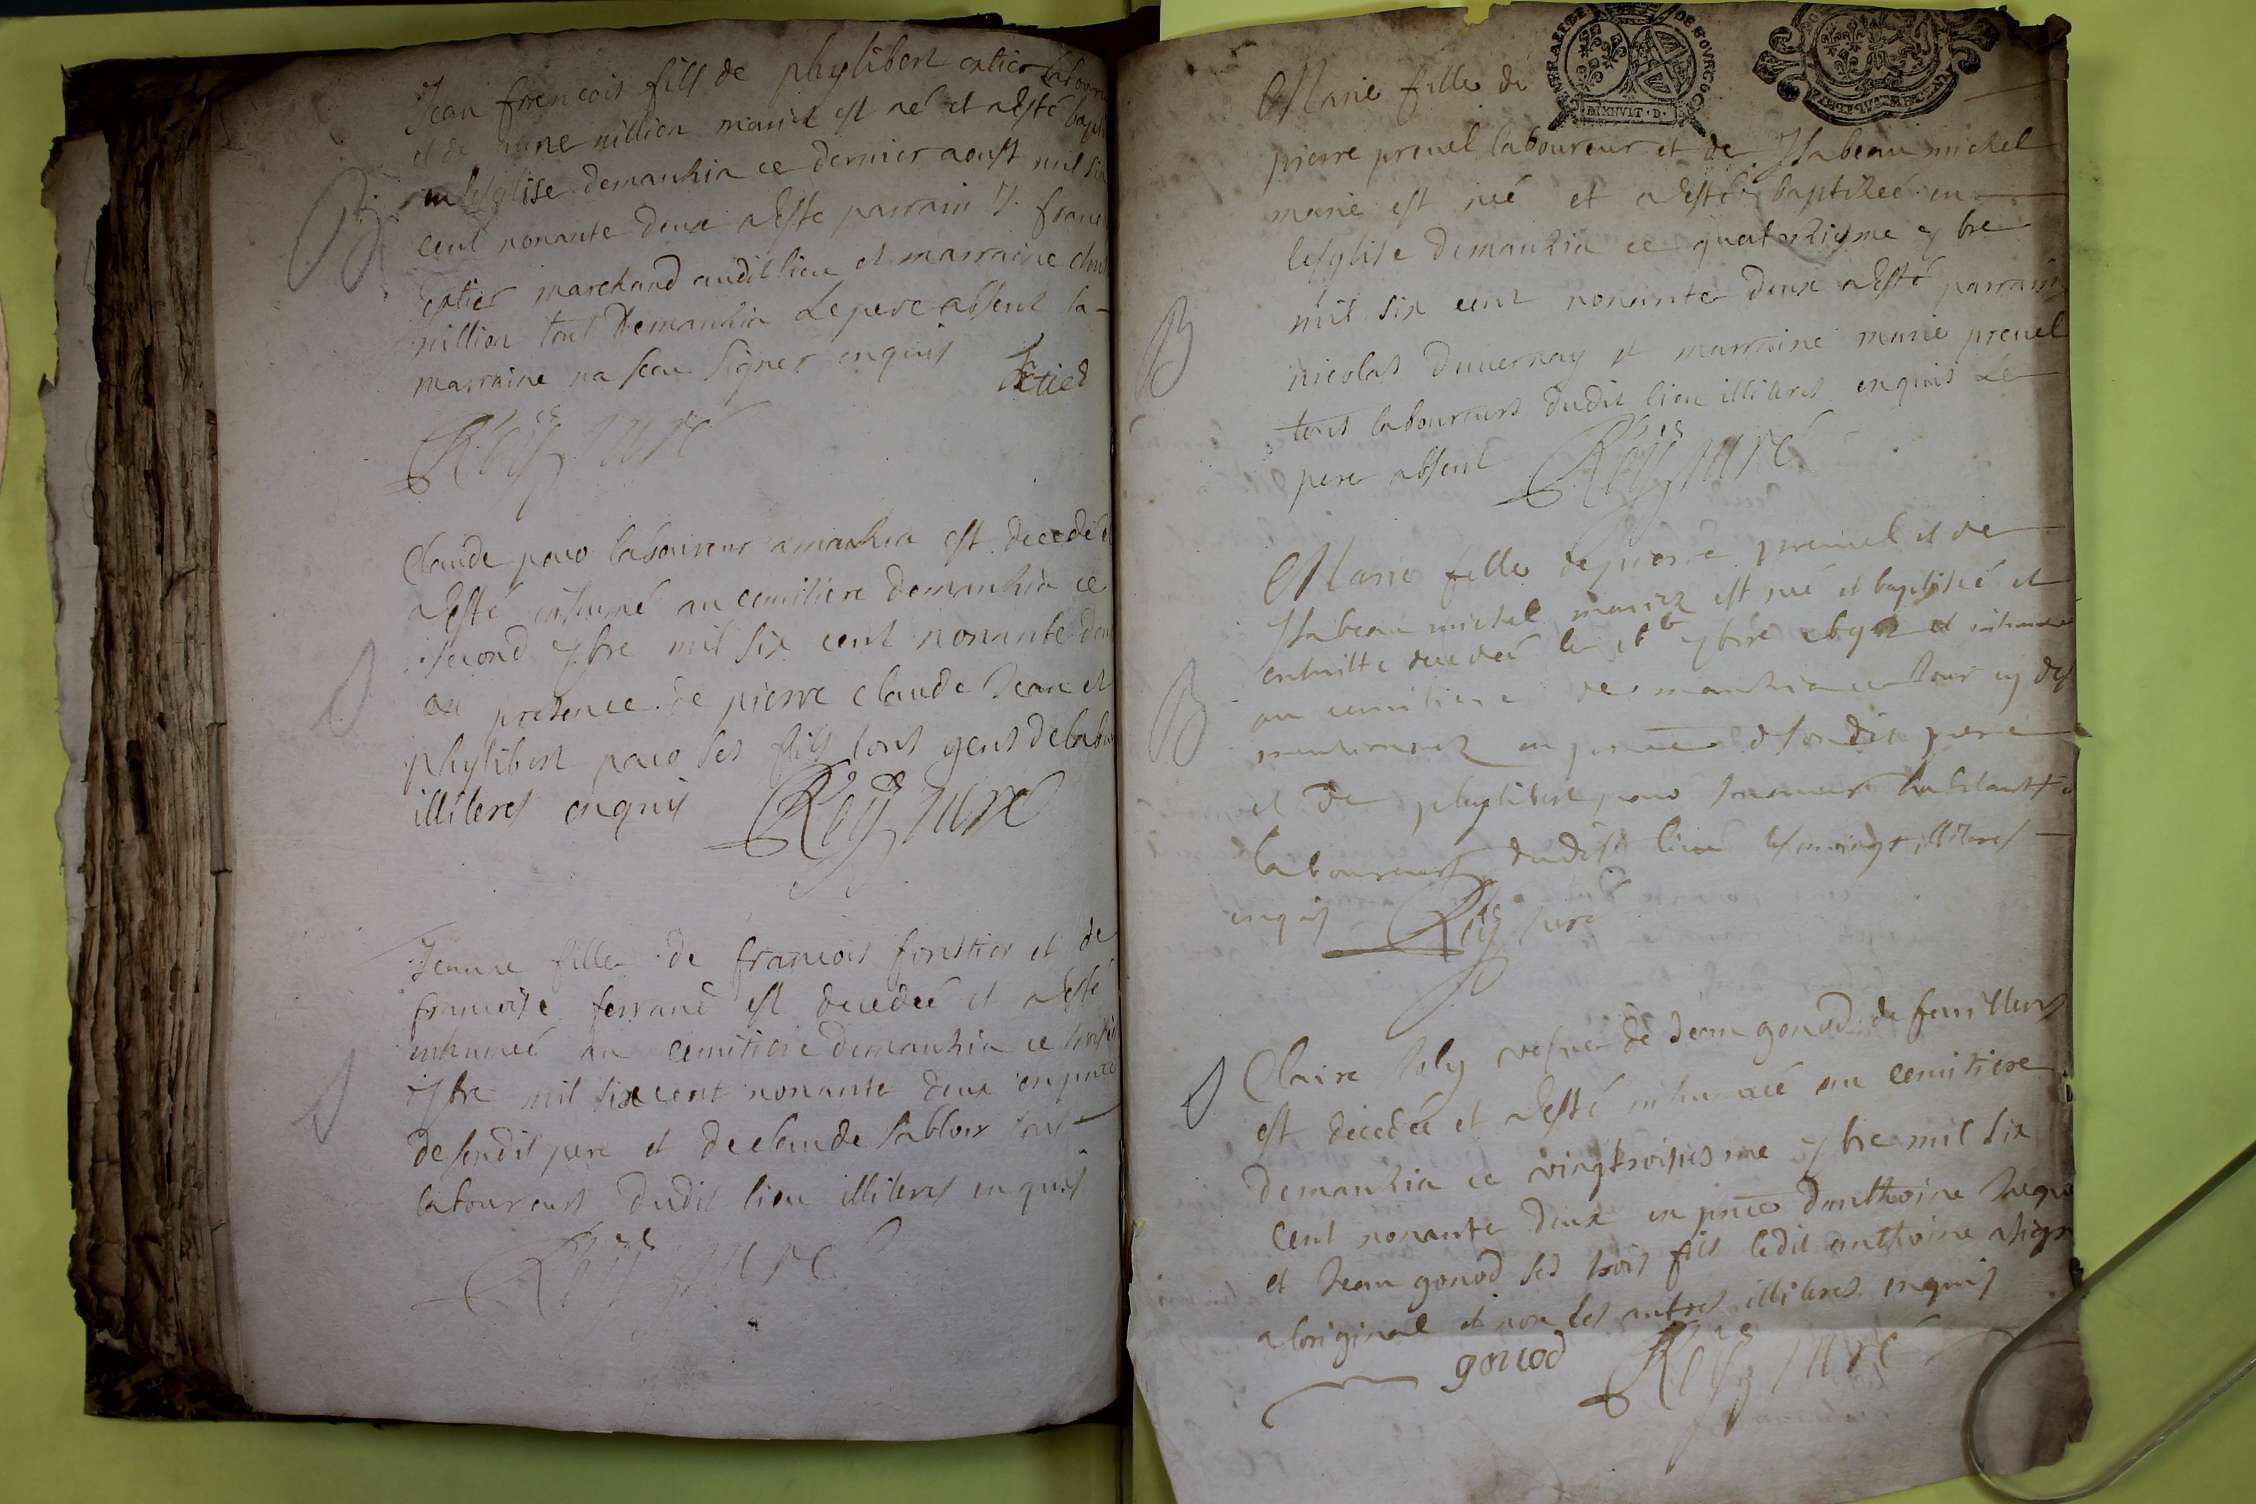 Jean francois fils de phylibert catier laboure
et de anne million mariez est né et a esté bapt
en lesglise demanzia ce dernier aoust mil six
cent nonante deux a esté parrain J. franc
catier marchand audit lieu et marraine claud
million tous demanzia Le pere absent la
marraine na sceu signer enquis
Catier
Rey curé
Claude paco laboureur a manzia est decedé et
a esté inhumé au cemitiere demanzia ce
second 7bre mil six cent nonante deux
en presence de pierre claude Jean et
phylibert paco ses fils tous gens de labeur
illiteres enquis Rey curé
Jeanne fille de francois forestier et de
francoise ferrand est decedeé et a esté
inhumeé au cemitiere demanzia ce
7bre mil six cent nonante deux en pnce
de sondit pere et de claude sablon tous
laboureurs dudit lieu illiteres enquis
Rey curé
Marie fille de
GENERALITE DE BOVRGOG
DIXHVIT · D ·
pierre preuel laboureur et de Ysabeau michel
marié est neé et a esté baptizeé en
lesglise demanzia ce quatorziesme 7bre
mil six cent nonante deux a esté parrain
nicolas duvernay et marraine marie preuel
tous laboureurs dudit lieu illiteres enquis Le
pere absent Rey curé
Marie fille de pierre preuel et de
Ysabeau michel mariez est neé et baptiseé et
ensuitte decedeé le 7bre et inhumeé
au cemitiere de manzia ce Jour
en pnce de sondit pere
et de phylibert paco habitants
laboureurs dudit lieu tesmoings illiteres
enquis Rey curé
Claire Joly vefue de Jean gonod de feuillens
est decedeé et a esté inhumeé au cemitiere
demanzia ce vingtroisiesme 7bre mil six
cent nonante deux en pnce danthoine Jacque
et Jean gonod ses trois fils ledit anthoine a signé
a loriginal et non les autres illiteres enquis
gonod Rey curé